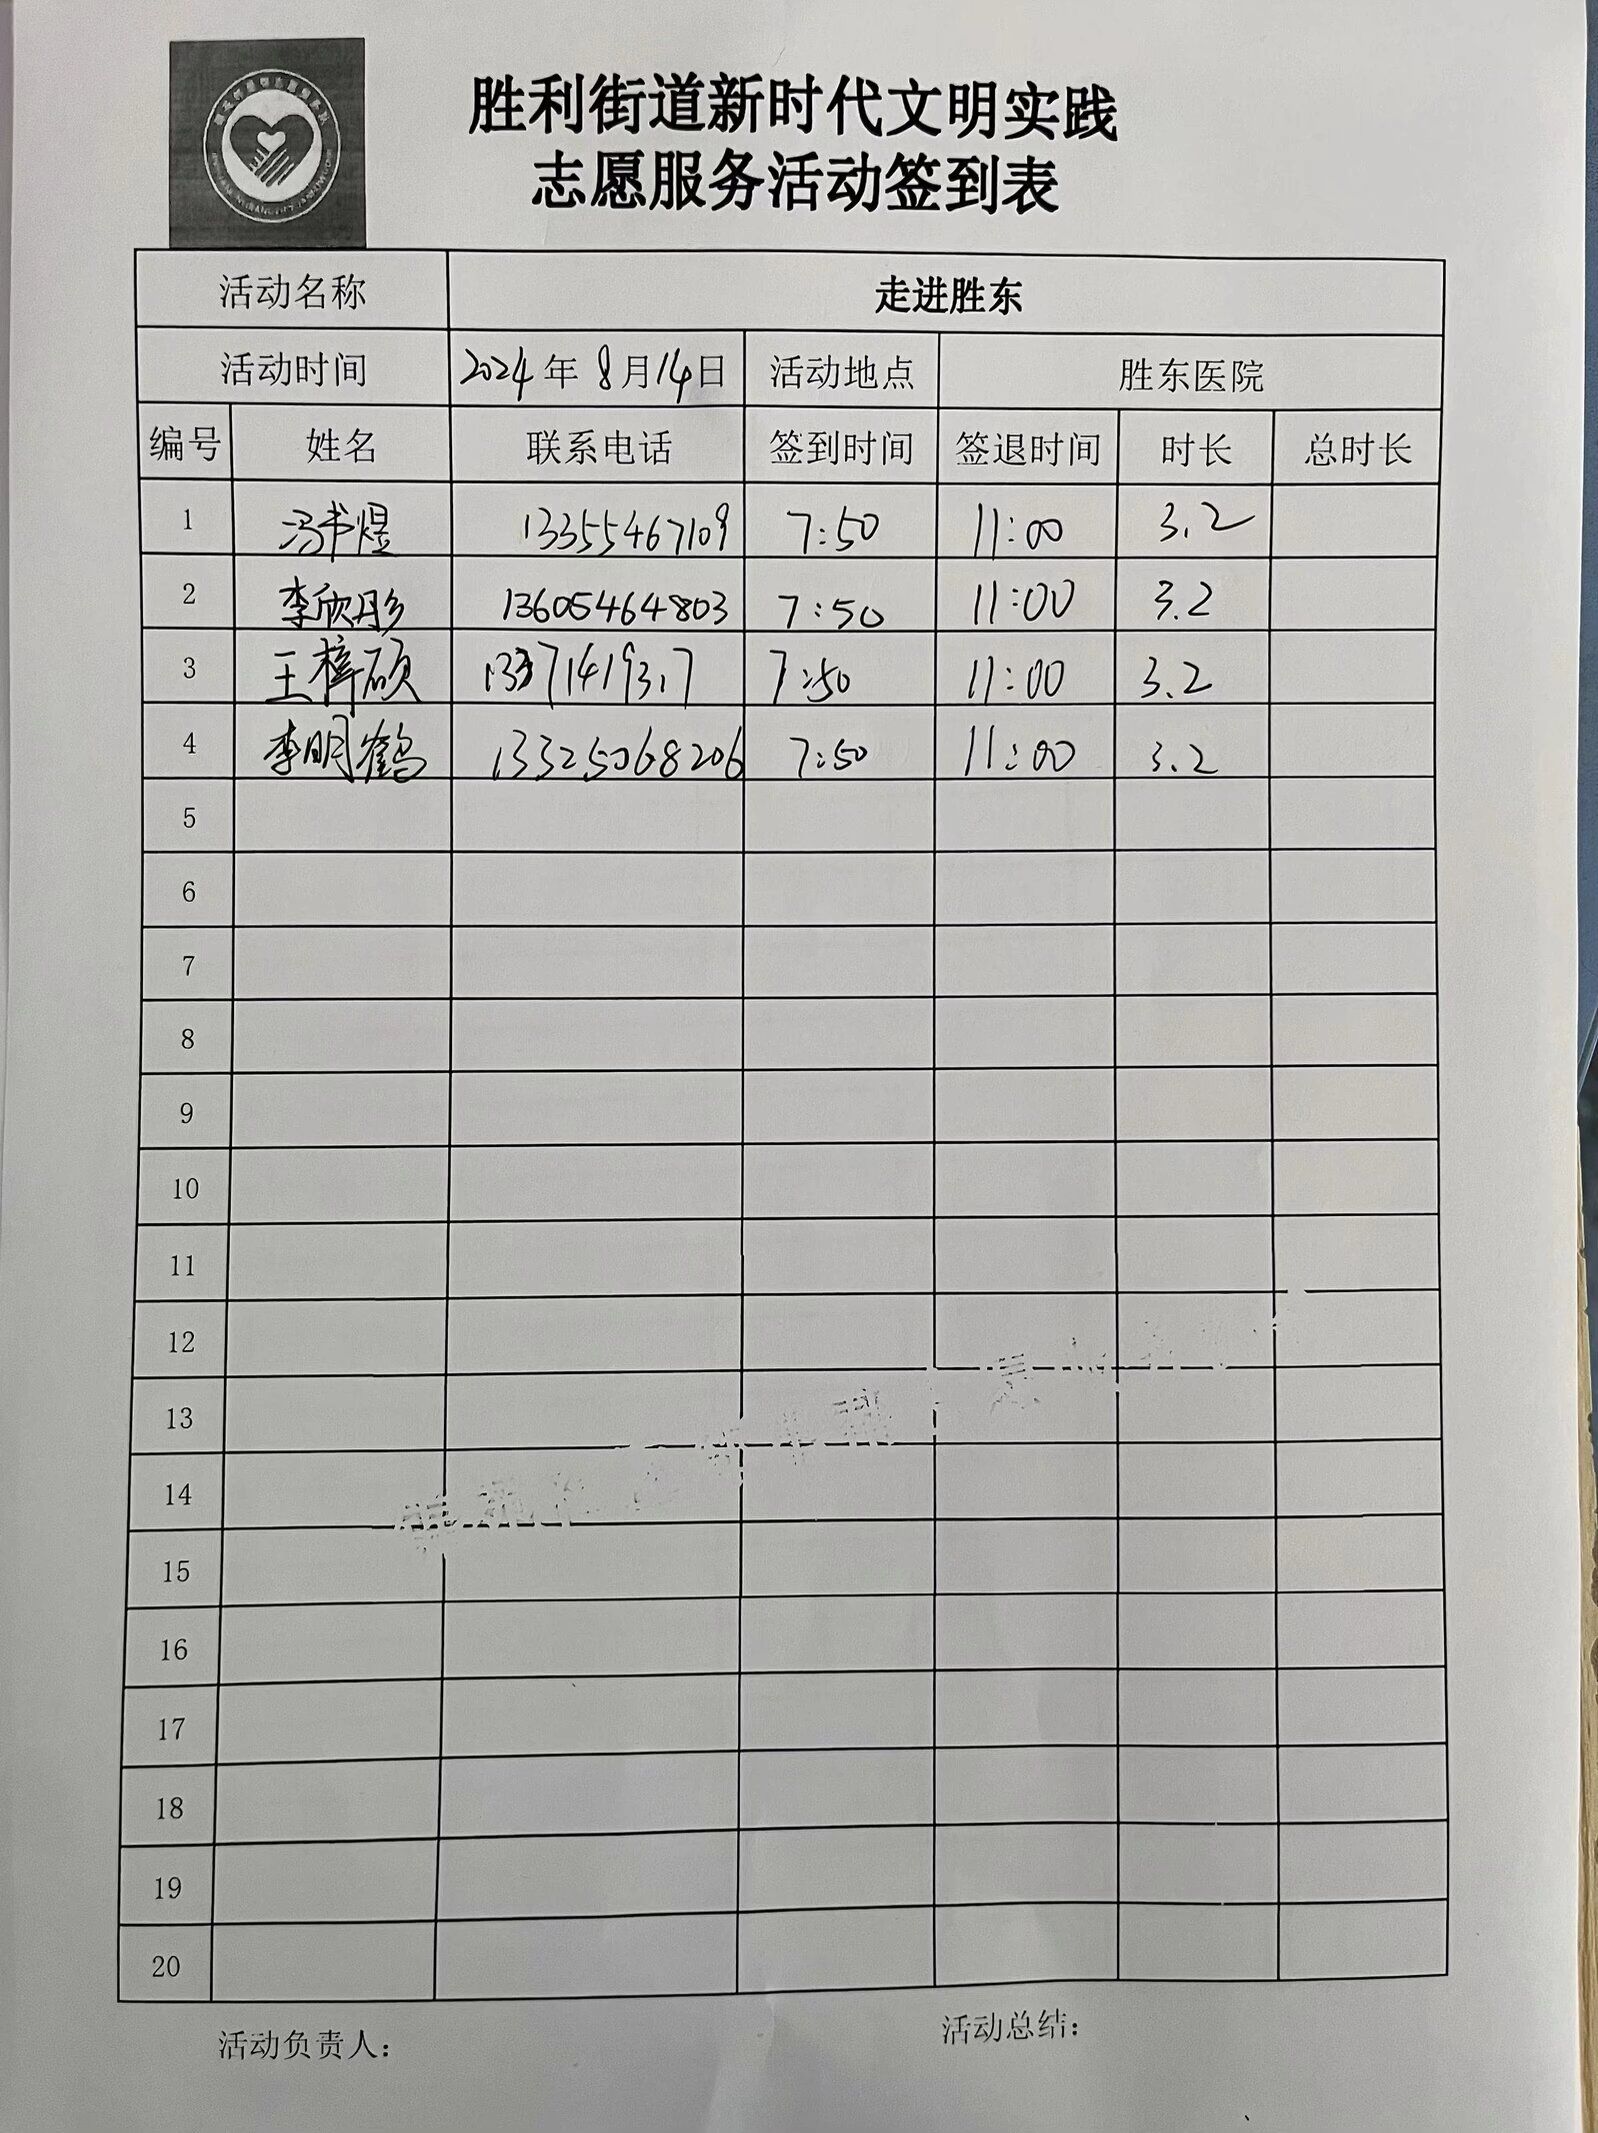 胜利街道新时代文明实践
志愿服务活动签到表
活动名称 走进胜东
活动时间 2024年 8月14日 活动地点 胜东医院
编号 姓名 联系电话 签到时间 签退时间 时长 总时长
1 冯书煜 13355467109 7:50 11:00 3.2
2 李欣彤 13605464803 7:50 11:00 3.2
3 王梓硕 7:50 11:00 3.2
4 李明鹤 13325068206 7:50 11:00 3.2
5
6
7
8
9
10
11
12
13
14
15
16
17
18
19
20
活动负责人: 活动总结: